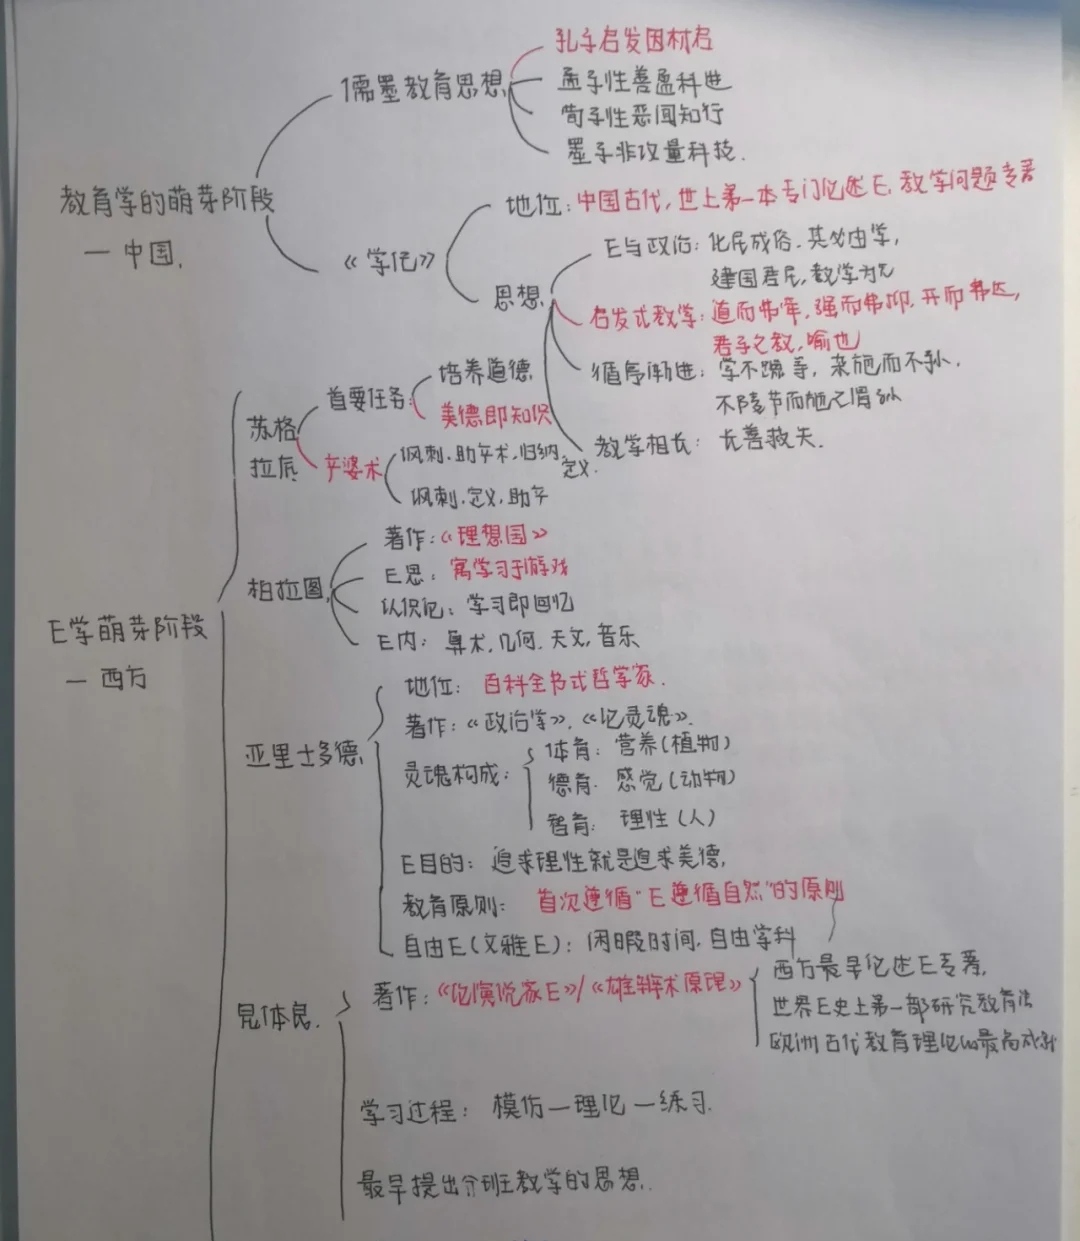 孔子启发因材启
儒墨教育思想
孟子性善盈科进
荀子性恶闻知行
墨子非攻量科技.
教育学的萌芽阶段
一中国.
《学记》
地位: 中国古代, 世上第一本专门论述E. 教学问题专著
思想
E与政治: 化民成俗. 其必由学,
建国君民, 教学为先
启发式教学: 道而弗牵, 强而弗抑, 开而弗达,
君子之教, 喻也
循序渐进: 学不躐等, 杂施而不孙.
不陵节而施之谓孙
教学相长: 长善救失.
苏格
拉底
首要任务:
培养道德
美德即知识
产婆术
讽刺.助产术.归纳.定义.
讽刺.定义.助产
柏拉图
著作:《理想国》
E思: 寓学习于游戏
认识论: 学习即回忆
E内: 算术, 几何. 天文, 音乐
E学萌芽阶段
一西方
亚里士多德
地位: 百科全书式哲学家.
著作:《政治学》.《论灵魂》.
灵魂构成:
体育: 营养(植物)
德育. 感觉(动物)
智育: 理性(人)
E目的: 追求理性就是追求美德,
教育原则: 首次遵循“E遵循自然”的原则
自由E(文雅E): 闲暇时间. 自由学科
昆体良.
著作:《论演说家E》/《雄辩术原理》
西方最早论述E专著,
世界E史上第一部研究教育法
欧洲古代教育理论的最高成就
学习过程: 模仿一理论一练习.
最早提出分班教学的思想.